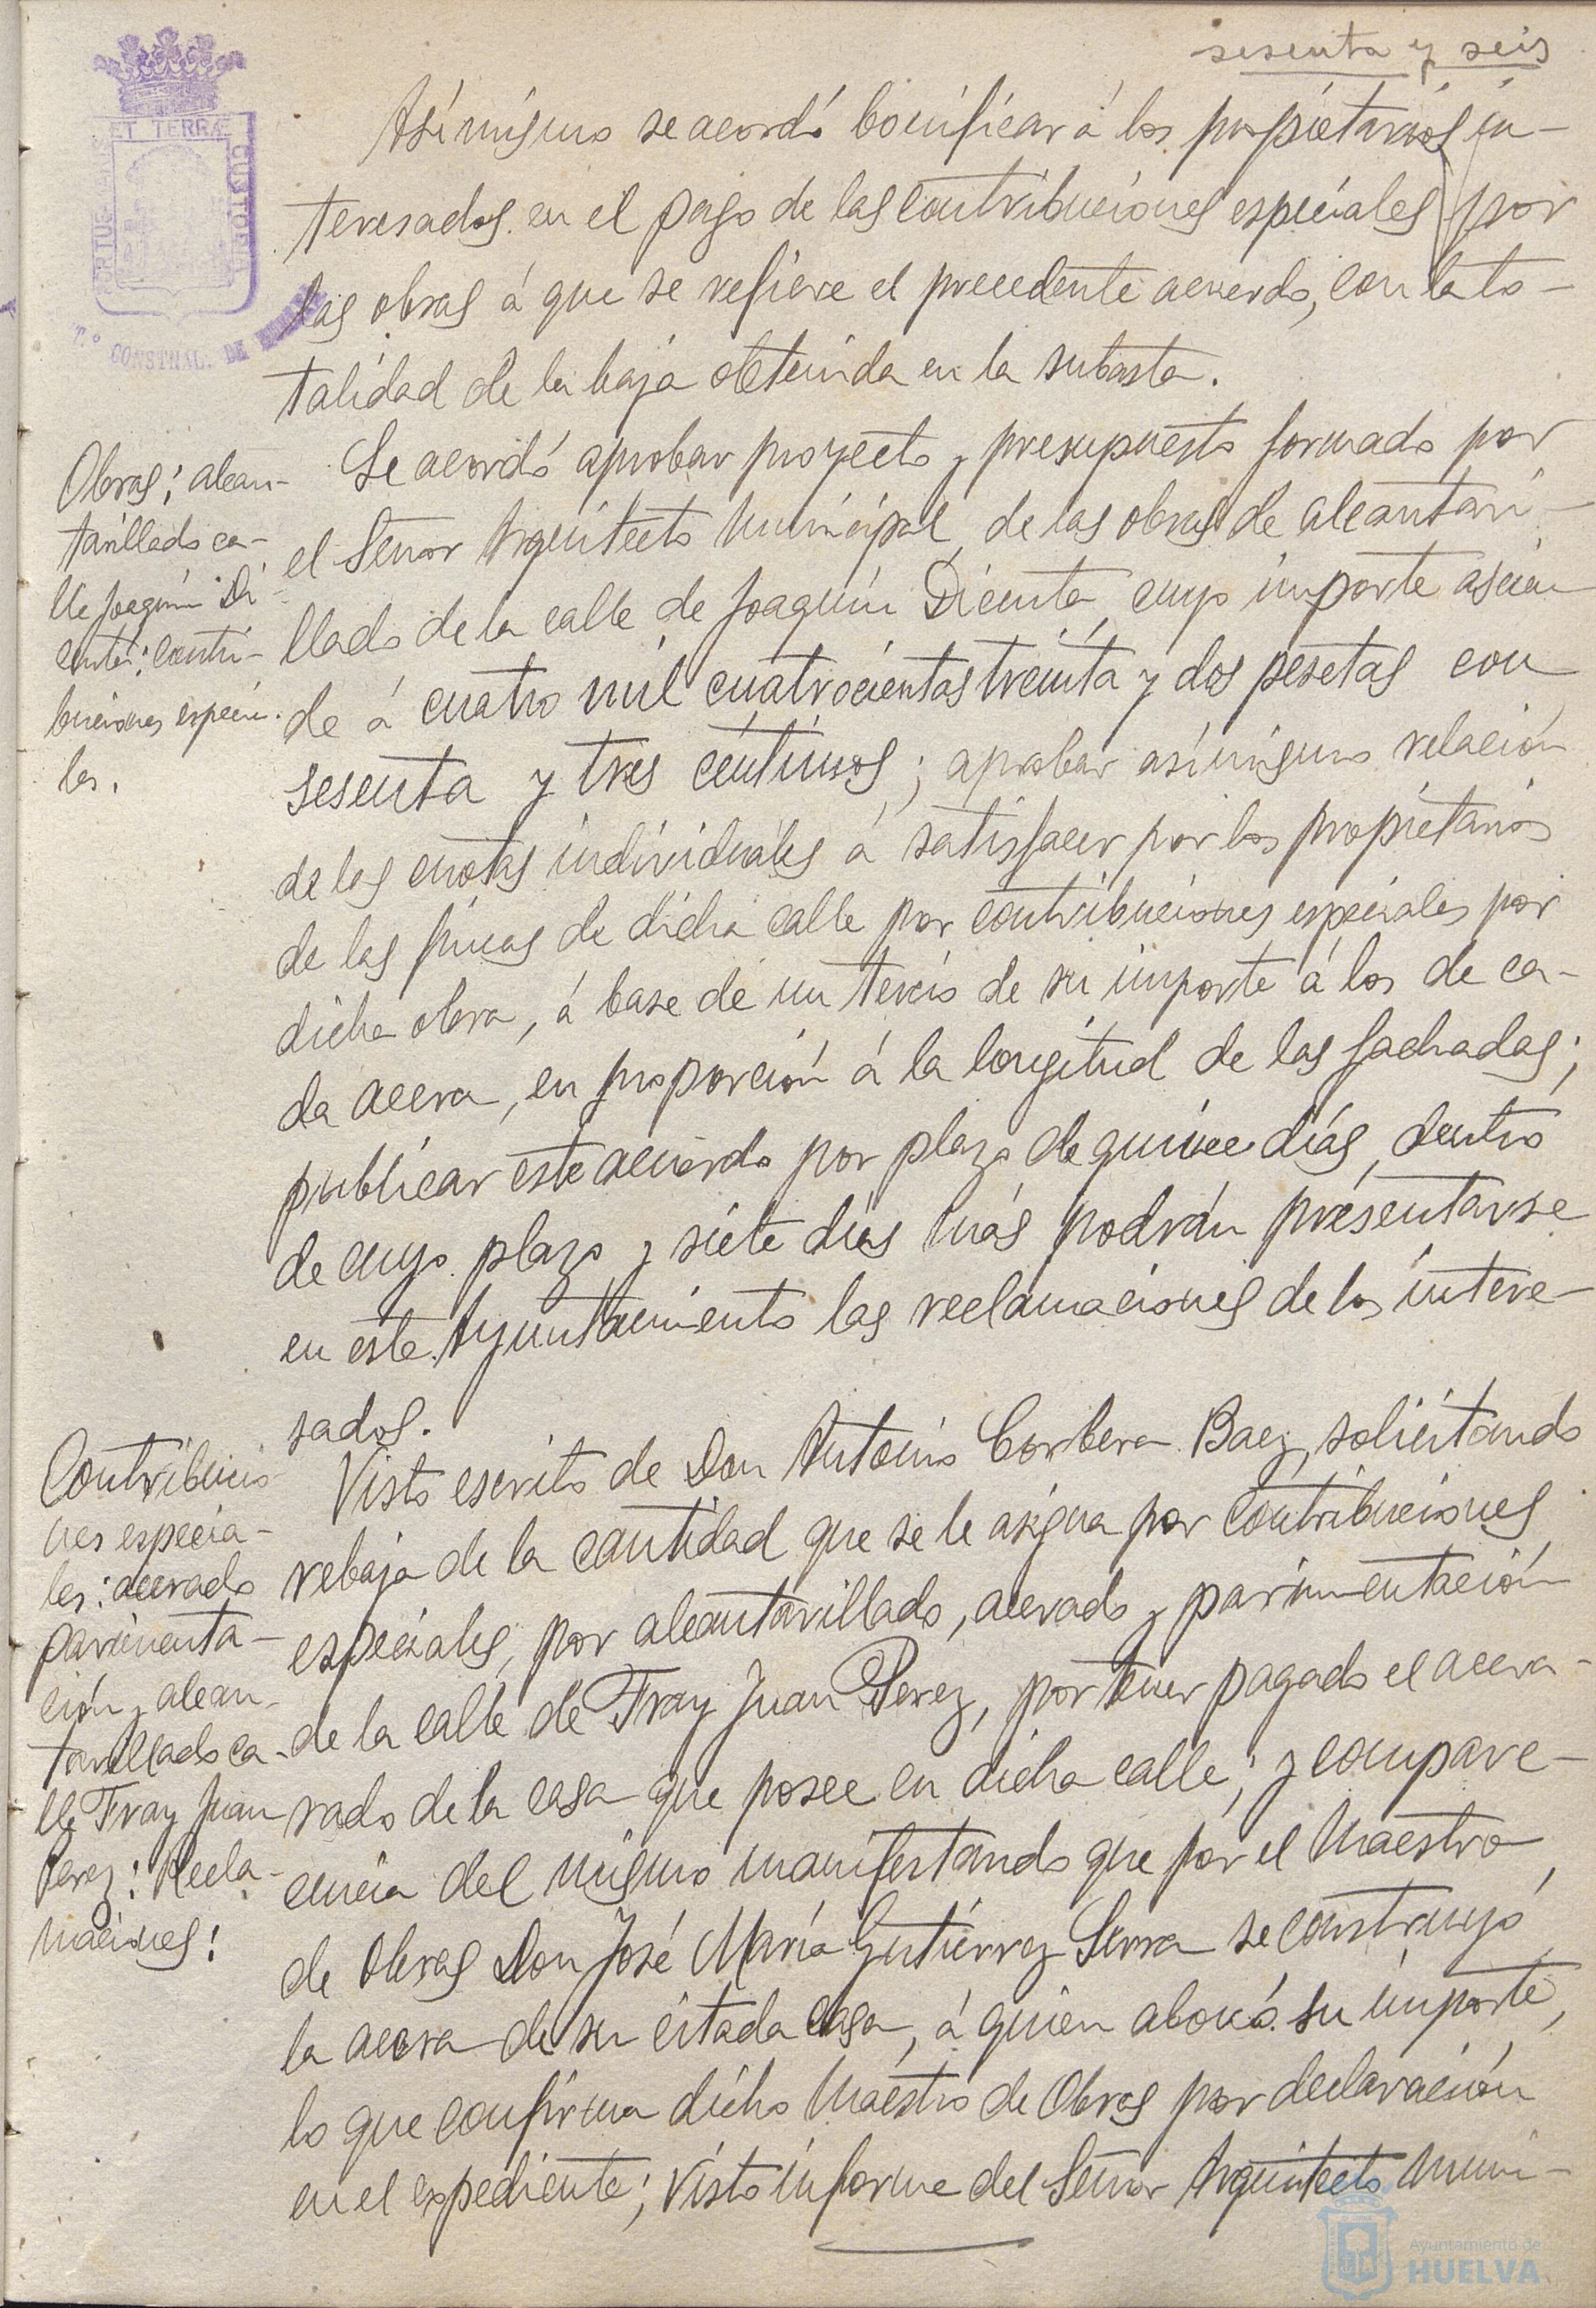 sesenta y seis
PORTUS MARIS ET TERRÆ CUSTODIA
Tº CONSTNAL. DE HUELVA
Asímismo se acordó bonificar á los propietarios in-
teresados en el pago de las contribuciones especiales por
las obras á que se refiere el precedente acuerdo, con la to-
talidad de la baja obtenida en la subasta.
Obras; alcan-
tarillado ca-
lle Joaquín Di-
centa; contri-
buciones especia-
les.
Se acordó aprobar proyecto y presupuesto formado por
el Señor Arquitecto Municipal, de las obras de alcantari-
llado de la calle de Joaquín Dicenta, cuyo importe ascien-
de á cuatro mil cuatrocientas treinta y dos pesetas con
sesenta y tres céntimos; aprobar asímismo relación
de las cuotas individuales á satisfacer por los propietarios
de las fincas de dicha calle por contribuciones especiales por
dicha obra, á base de un tercio de su importe á los de ca-
da acera, en proporción á la longitud de las fachadas;
publicar este acuerdo por plazo de quince días, dentro
de cuyo plazo y siete días más podrán presentarse
en este Ayuntamiento las reclamaciones de los intere-
sados.
Contribucio-
nes especia-
les: acerado
pavimenta-
ción y alcan-
tarillado ca-
lle Fray Juan
Perez: Recla-
maciones:
Visto escrito de Don Antonio Corbera Baez, solicitando
rebaja de la cantidad que se le asigna por contribuciones
especiales, por alcantarillado, acerado y pavimentación
de la calle de Fray Juan Perez, por tener pagado el acera-
rado de la casa que posee en dicha calle; y compare-
cencia del mismo manifestando que por el Maestro
de Obras Don José María Gutiérrez Serra se construyó
la acera de su citada casa, á quien abonó su importe,
lo que confirma dicho Maestro de Obras por declaración
en el expediente; visto informe del Señor Arquitecto Muni-
Ayuntamiento de
HUELVA